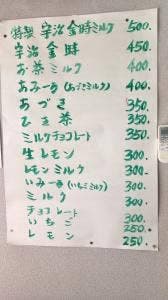 特製 宇治金時ミルク 500.
宇治金時 450.
お茶ミルク 400.
あみーゴ(あづきミルク) 400.
あづき 350.
ひき茶 350.
ミルクチョコレート 350.
生レモン 300.
レモンミルク 300.
いみーゴ(いちごミルク) 300.
ミルク 300.
チョコレート 300.
いちご 250.
レモン 250.